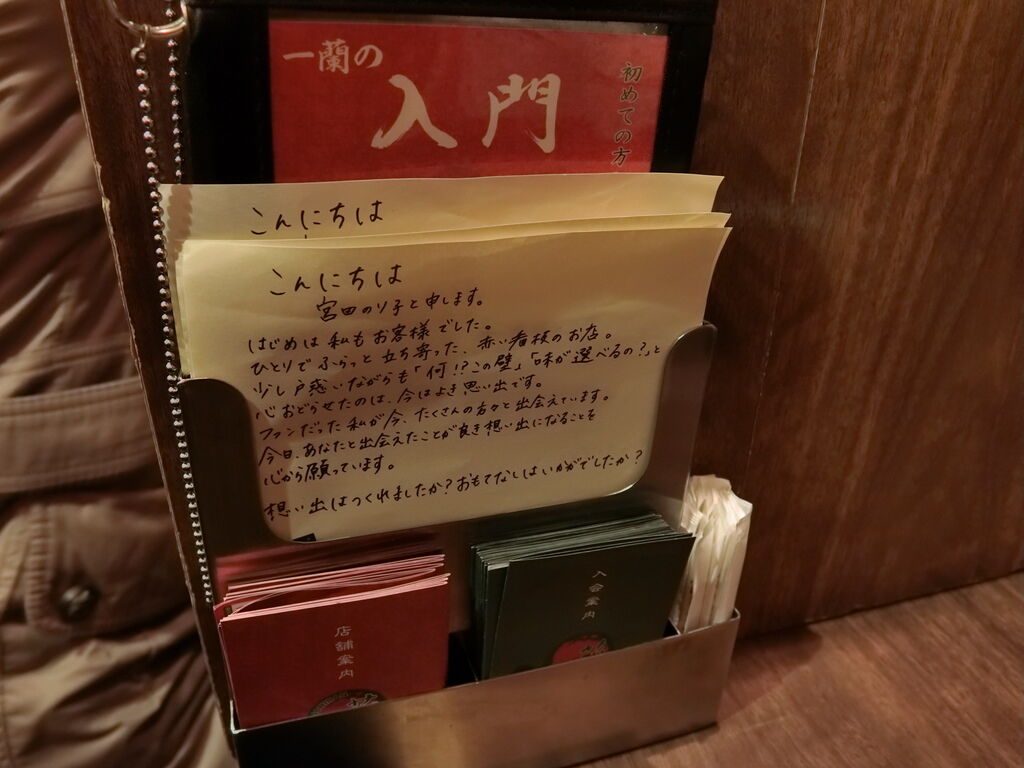 一蘭の
入門
初めての方
こんにちは
こんにちは
宮田のり子と申します。
はじめは私もお客様でした。
ひとりでふらっと立ち寄った、赤い看板のお店。
少し戸惑いながらも「何!?この壁」「味が選べるの?」と
心おどらせたのは、今はよき思い出です。
ファンだった私が今、たくさんの方々と出会えています。
今日、あなたと出会えたことが良き想い出になることを
心から願っています。
想い出はつくれましたか?おもてなしはいかがでしたか?
店舗案内
入会案内